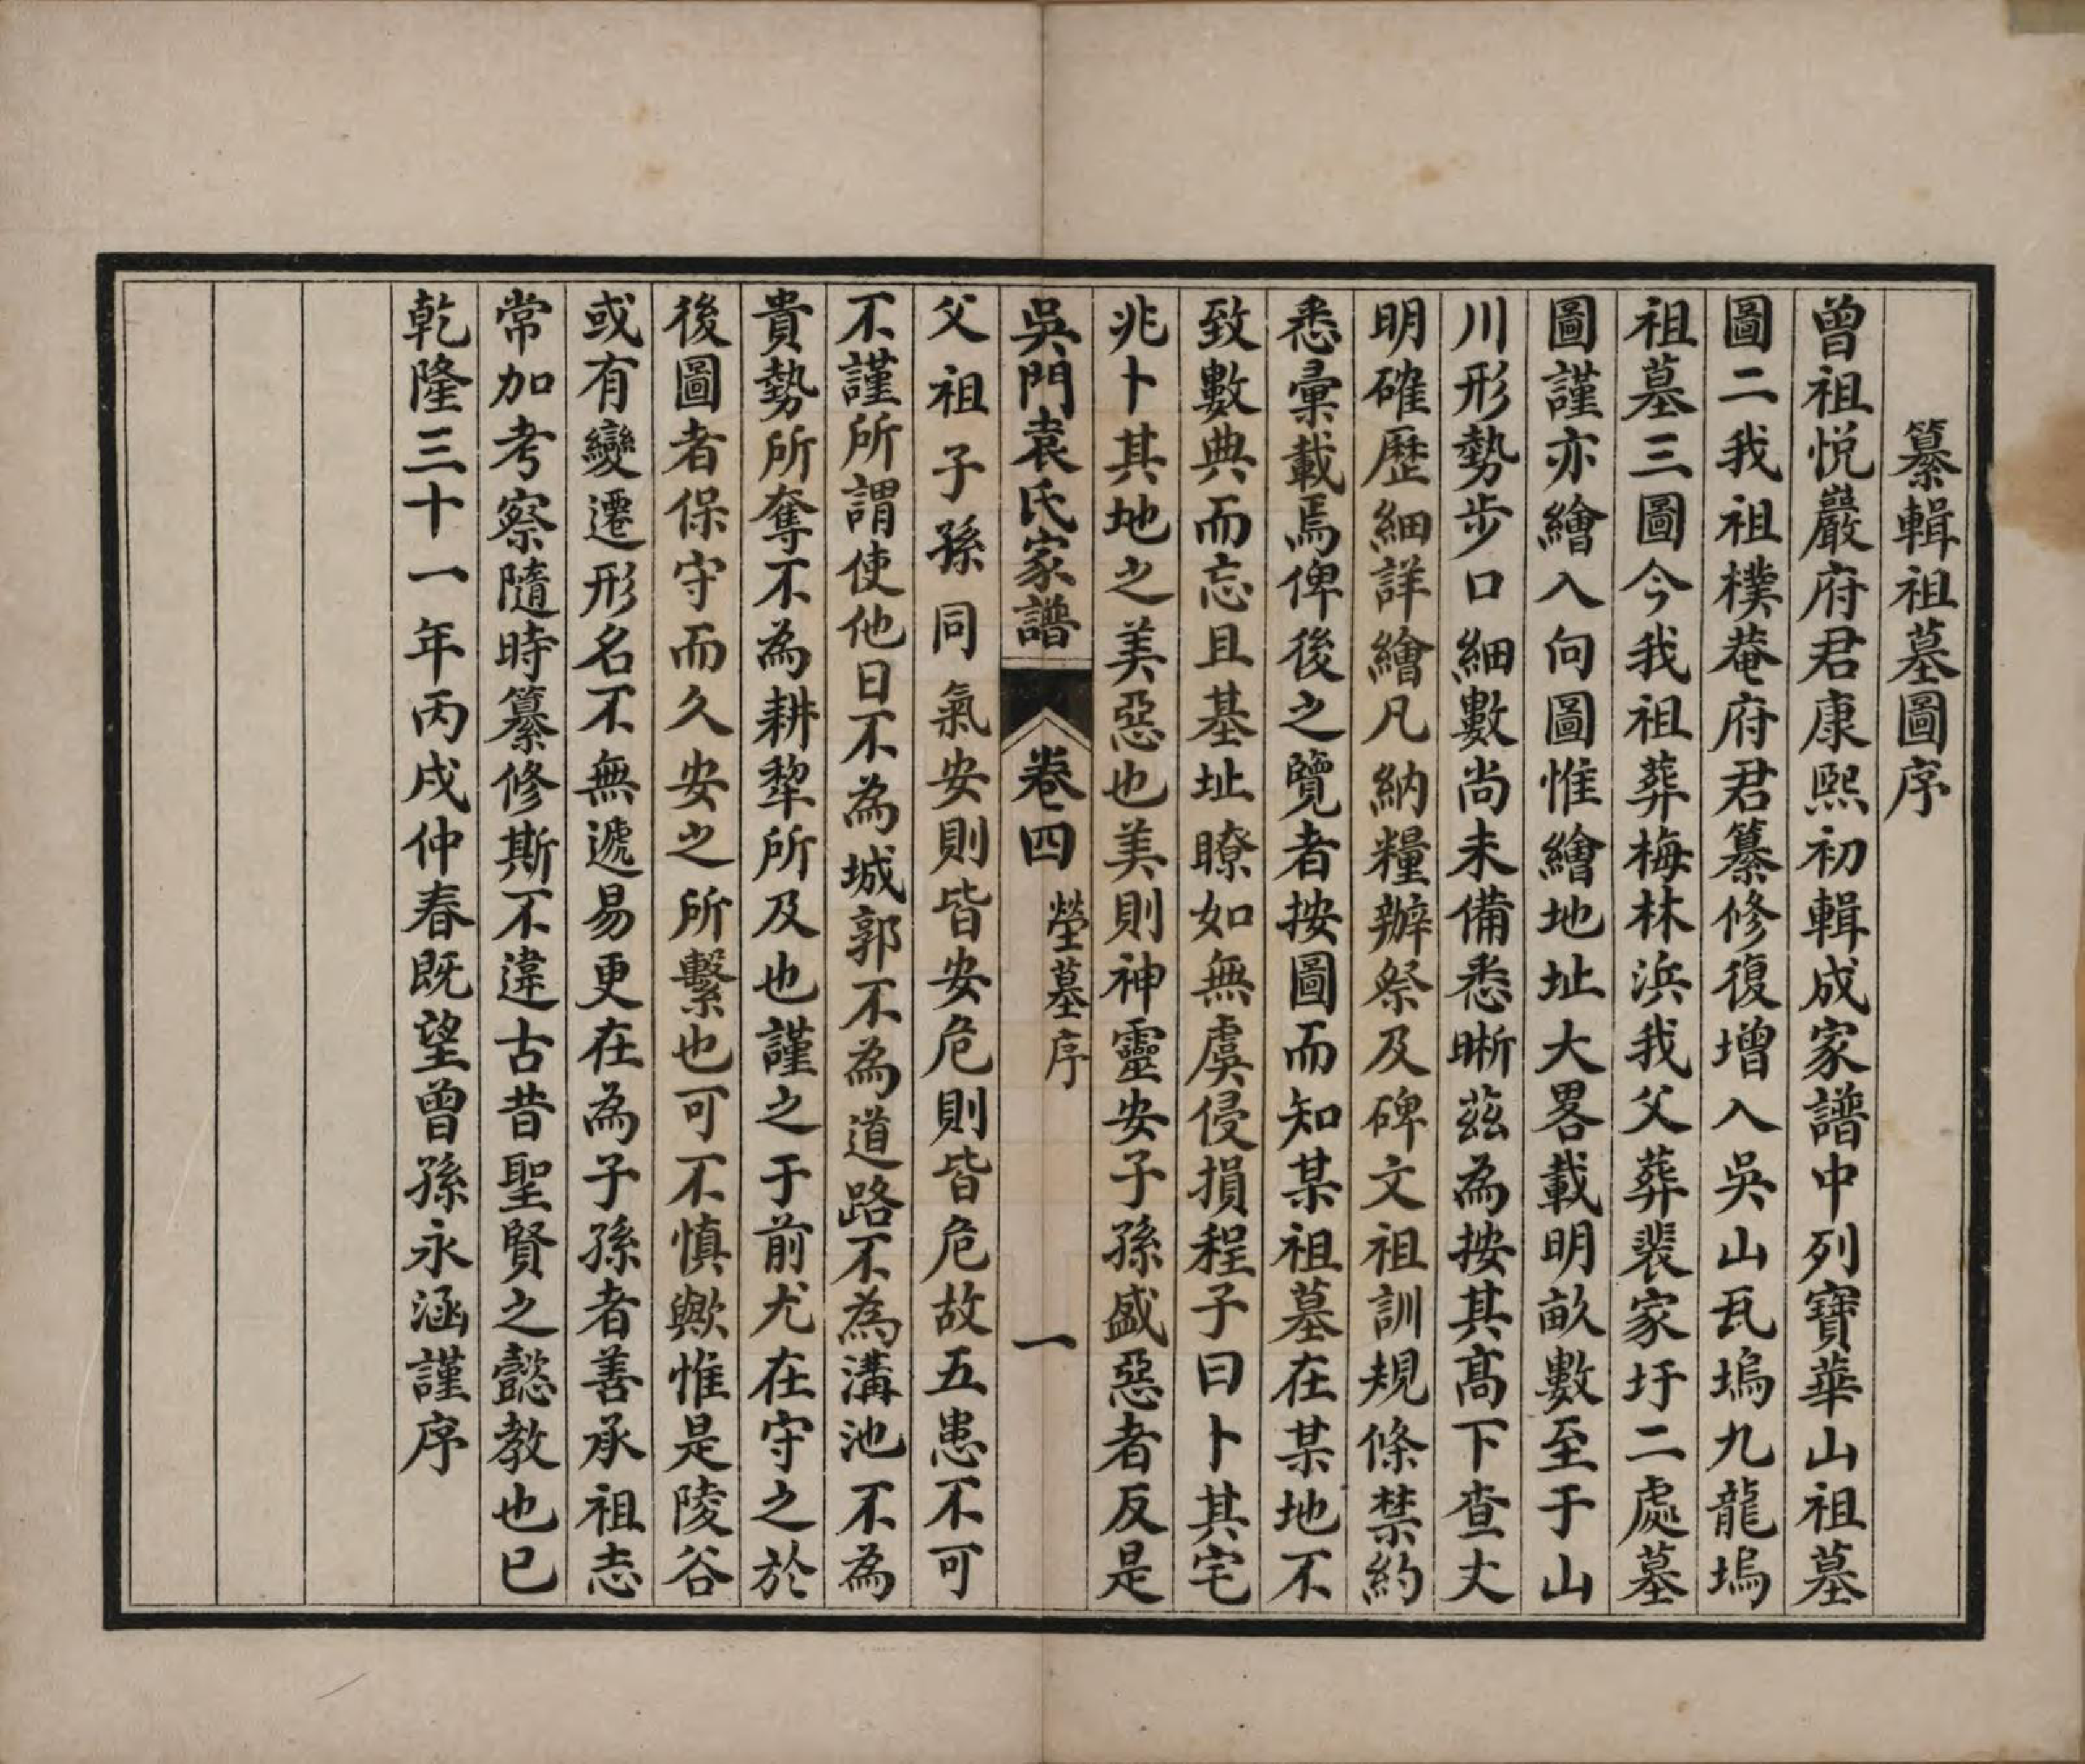 纂輯祖墓圖序
曾祖悦巖府君康熙初輯成家譜中列寶華山祖墓
圖二我祖樸菴府君纂修復增入吳山瓦塢九龍塢
祖墓三圖今我祖葬梅林浜我父葬裴家圩二處墓
圖謹亦繪入向圖惟繪地址大畧載明畝數至于山
川形勢步口細數尚未備悉晰茲為按其髙下查丈
明確歷細詳繪凡納糧辦祭及碑文祖訓規條禁約
悉彚載焉俾後之覽者按圖而知某祖墓在某地不
致數典而忘且基址瞭如無虞侵損程子曰卜其宅
兆卜其地之美惡也美則神靈安子孫盛惡者反是
吳門袁氏家譜 卷四 塋墓序 一
父祖子孫同氣安則皆安危則皆危故五患不可
不謹所謂使他日不為城郭不為道路不為溝池不為
貴勢所奪不為耕犂所及也謹之于前尤在守之於
後圖者保守而久安之所繫也可不慎歟惟是陵谷
或有變遷形名不無遞易更在為子孫者善承祖志
常加考察隨時纂修斯不違古昔聖賢之懿教也已
乾隆三十一年丙戌仲春既望曾孫永涵謹序